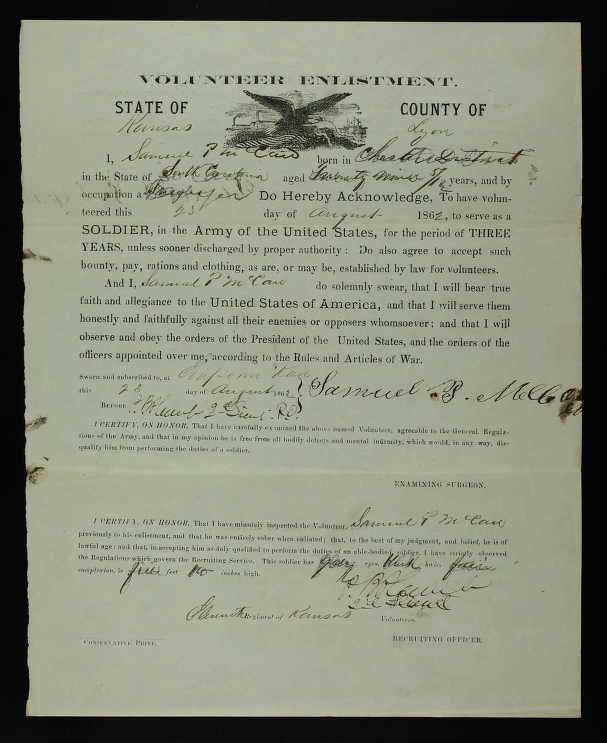 VOLUNTEER ENLISTMENT.
STATE OF COUNTY OF
Kansas Lyon
I, Samuel P McCaw born in Chester District
in the State of South Carolina aged Twenty Nine years, and by
occupation a Do Hereby Acknowledge, To have volun-
teered this 23 day of August 1862, to serve as a
SOLDIER, in the Army of the United States, for the period of THREE
YEARS, unless sooner discharged by proper authority: Do also agree to accept such
bounty, pay, rations and clothing, as are, or may be, established by law for volunteers.
And I, Samuel P McCaw do solemnly swear, that I will bear true
faith and allegiance to the United States of America, and that I will serve them
honestly and faithfully against all their enemies or opposers whomsoever; and that I will
observe and obey the orders of the President of the United States, and the orders of the
officers appointed over me, according to the Rules and Articles of War.
Sworn and subscribed to, at Emporia
this 23 day of August 1862 Samuel P. McCaw
Before
I CERTIFY, ON HONOR. That I have carefully examined the above named Volunteer, agreeable to the General Regula-
tions of the Army, and that in my opinion he is free from all bodily defects and mental infirmity, which would, in any way, dis-
qualify him from performing the duties of a soldier.
EXAMINING SURGEON.
I CERTIFY, ON HONOR. That I have minutely inspected the Volunteer, Samuel P McCaw
previously to his enlistment, and that he was entirely sober when enlisted; that, to the best of my judgment, and belief, he is of
lawful age; and that, in accepting him as duly qualified to perform the duties of an able-bodied soldier, I have strictly observed
the Regulations which govern the Recruiting Service. This soldier has eyes, hair,
complexion, is five feet inches high.
Eleventh Regiment of Kansas Volunteers.
RECRUITING OFFICER.
CONSERVATIVE PRINT.